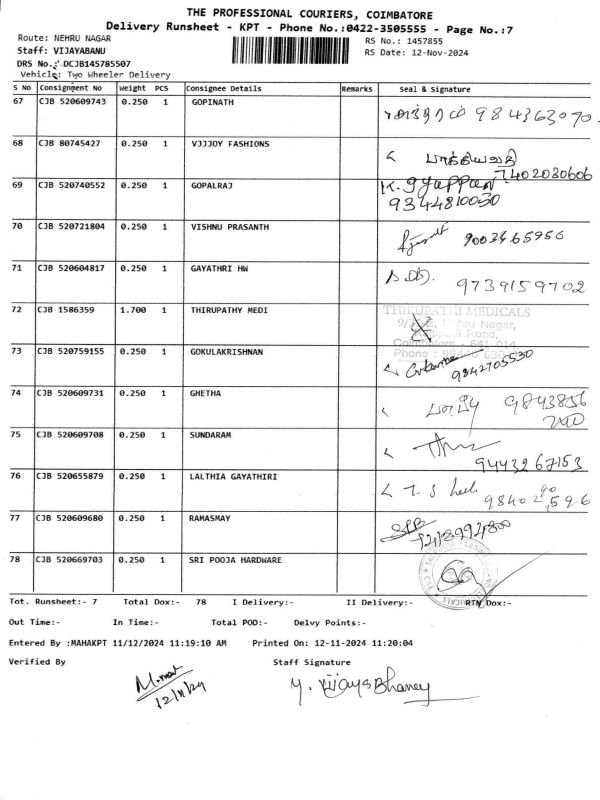 THE PROFESSIONAL COURIERS, COIMBATORE
Delivery Runsheet - KPT - Phone No.:0422-3505555 - Page No.:7
Route: NEHRU NAGAR RS No.: 1457855
Staff: VIJAYABANU RS Date: 12-Nov-2024
DRS No.: DCJB145785507
Vehicle: Two Wheeler Delivery
S No Consignment No Weight PCS Consignee Details Remarks Seal & Signature
67 CJB 520609743 0.250 1 GOPINATH 984363070
68 CJB 80745427 0.250 1 VJJJOY FASHIONS
7402030606
69 CJB 520740552 0.250 1 GOPALRAJ K. Iyappan
9344810030
70 CJB 520721804 0.250 1 VISHNU PRASANTH 9003465956
71 CJB 520604817 0.250 1 GAYATHRI HW 9739159702
72 CJB 1586359 1.700 1 THIRUPATHY MEDI THIRUPATHI MEDICALS
Nehru Nagar,
Road,
Coimbatore - 641 014
Phone :
73 CJB 520759155 0.250 1 GOKULAKRISHNAN 9842705530
74 CJB 520609731 0.250 1 GHETHA 9843856
75 CJB 520609708 0.250 1 SUNDARAM
9443267153
76 CJB 520655879 0.250 1 LALTHIA GAYATHIRI
77 CJB 520609680 0.250 1 RAMASMAY
78 CJB 520669703 0.250 1 SRI POOJA HARDWARE
Tot. Runsheet:- 7 Total Dox:- 78 I Delivery:- II Delivery:- RTN Dox:-
Out Time:- In Time:- Total POD:- Delvy Points:-
Entered By :MAHAKPT 11/12/2024 11:19:10 AM Printed On: 12-11-2024 11:20:04
Verified By Staff Signature
12/11/24
Y. VijayaBhaney